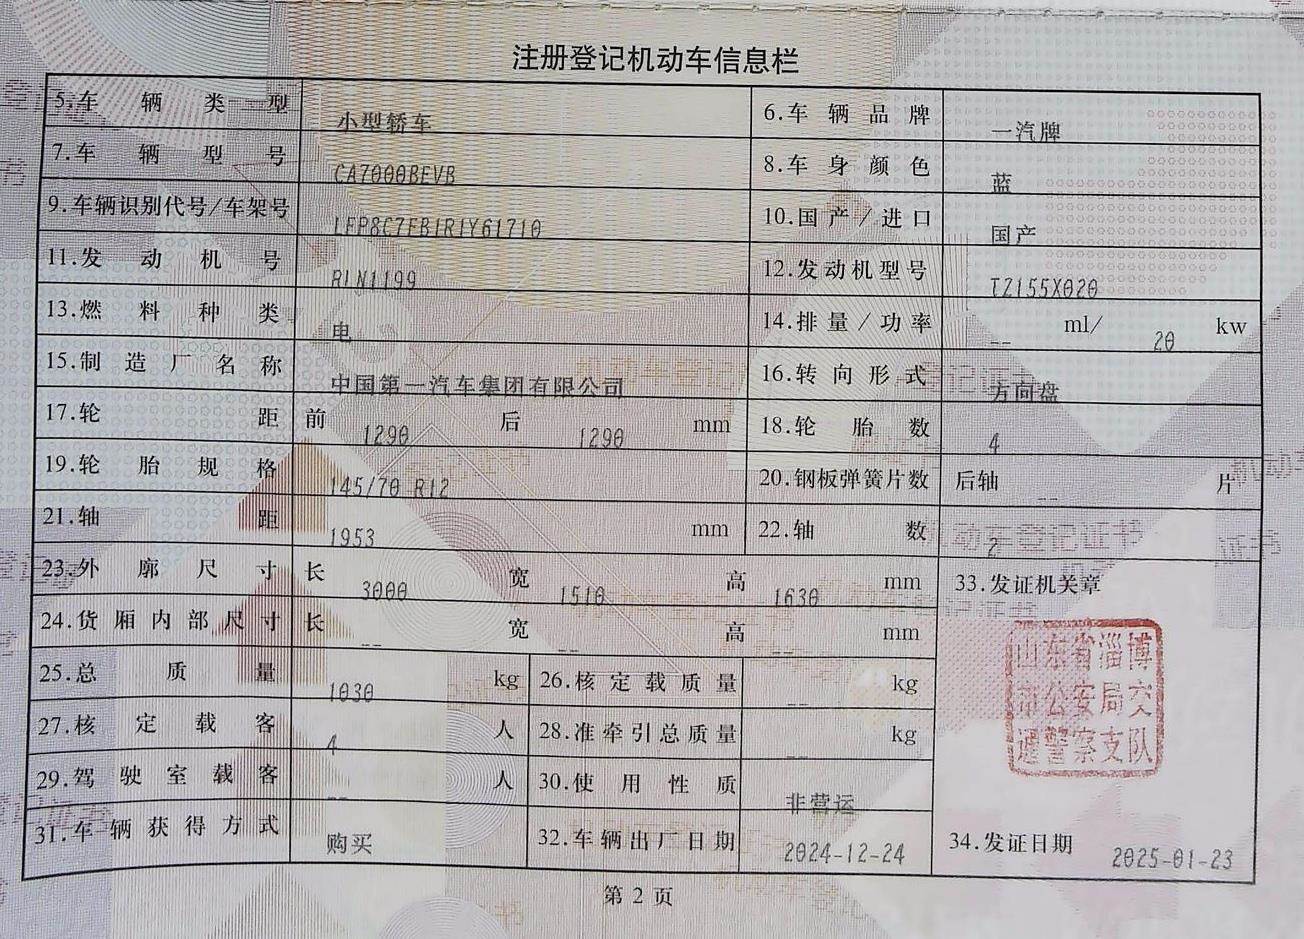 注册登记机动车信息栏
5.车辆类型 小型轿车 6.车辆品牌 一汽牌
7.车辆型号 CA7000BEVB 8.车身颜色 蓝
9.车辆识别代号/车架号 LFP8C7FB1R1Y61710 10.国产/进口 国产
11.发动机号 R1N1199 12.发动机型号 TZ155X020
13.燃料种类 电 14.排量/功率 -- ml/ 20 kw
15.制造厂名称 中国第一汽车集团有限公司 16.转向形式 方向盘
17.轮距 前 1290 后 1290 mm 18.轮胎数 4
19.轮胎规格 145/70 R12 20.钢板弹簧片数 后轴 -- 片
21.轴距 1953 mm 22.轴数 2
23.外廓尺寸 长 3000 宽 1510 高 1630 mm 33.发证机关章
24.货厢内部尺寸 长 -- 宽 -- 高 -- mm
山东省淄博
市公安局交
通警察支队
25.总质量 1030 kg 26.核定载质量 -- kg
27.核定载客 4 人 28.准牵引总质量 -- kg
29.驾驶室载客 -- 人 30.使用性质 非营运
31.车辆获得方式 购买 32.车辆出厂日期 2024-12-24 34.发证日期 2025-01-23
第 2 页